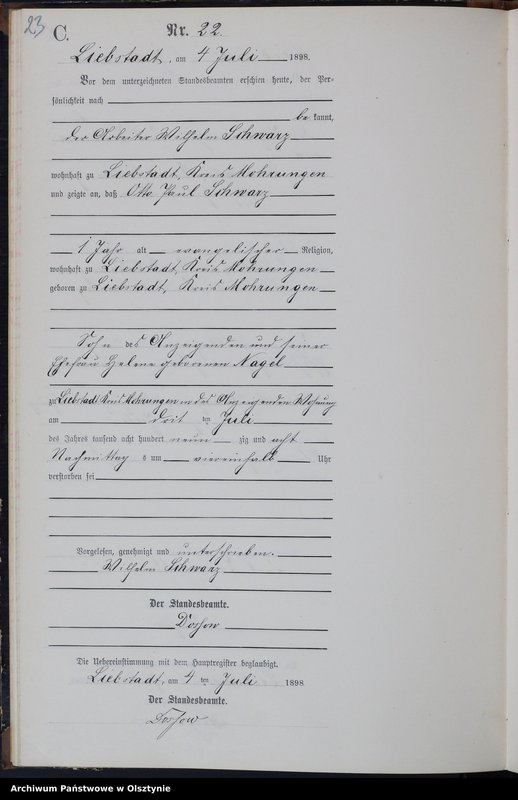 23
C.
Nr. 22.
Liebstadt, am 4 Juli 1898.
Vor dem unterzeichneten Standesbeamten erschien heute, der Per-
sönlichkeit nach
be kannt,
der Arbeiter Wilhelm Schwarz
wohnhaft zu Liebstadt, Kreis Mohrungen
und zeigte an, daß Otto Paul Schwarz
1 Jahr alt evangelischer Religion,
wohnhaft zu Liebstadt, Kreis Mohrungen
geboren zu Liebstadt, Kreis Mohrungen
Sohn des Anzeigenden und seiner
Ehefrau Helene geborenen Nagel
zu Liebstadt Kreis Mohrungen in des Anzeigenden Wohnung
am drit ten Juli
des Jahres tausend acht hundert neun zig und acht
Nachmittag s um viereinhalb Uhr
verstorben sei
Vorgelesen, genehmigt und unterschrieben.
Wilhelm Schwarz
Der Standesbeamte.
Die Uebereinstimmung mit dem Hauptregister beglaubigt.
Liebstadt, am 4 ten Juli 1898
Der Standesbeamte.
Archiwum Państwowe w Olsztynie